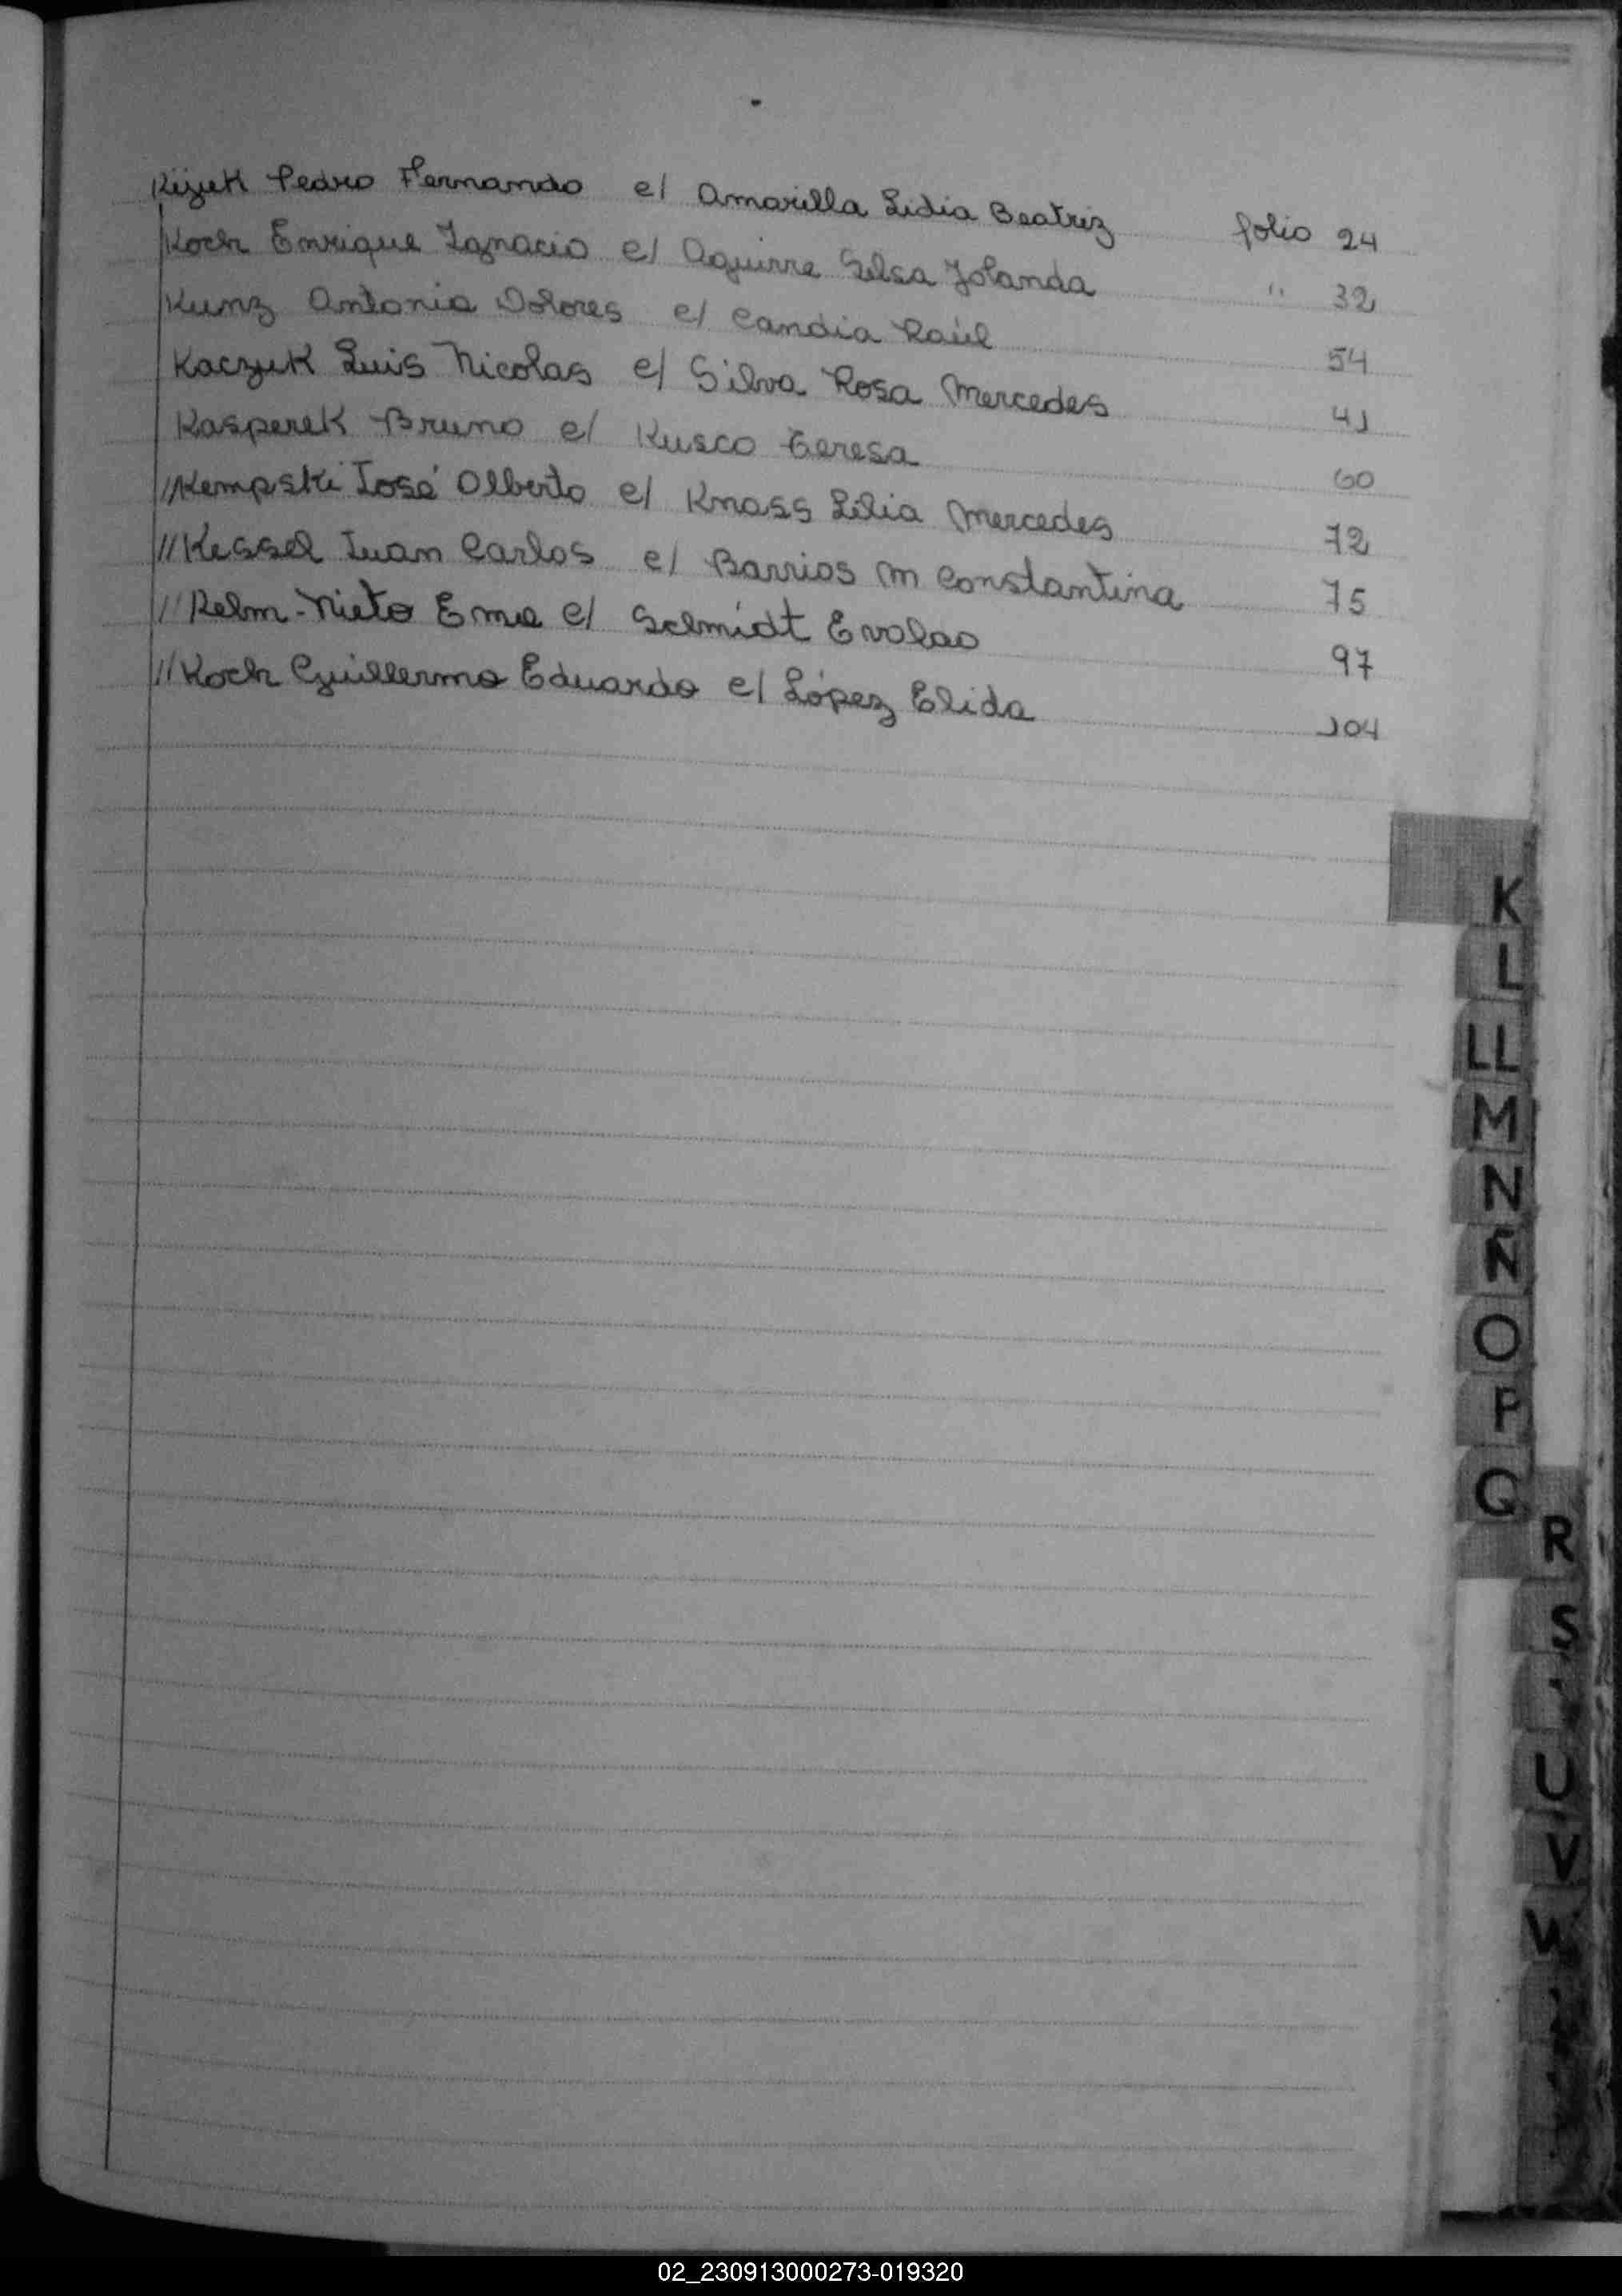 Kijuk Pedro Fernando c/ Amarilla Lidia Beatriz folio 24
Koch Enrique Ignacio c/ Aguirre Selsa Jolanda " 32
Kunz Antonia Dolores c/ Candia Raúl 54
Kaczuk Luis Nicolas c/ Silva Rosa Mercedes 41
Kasperek Bruno c/ Kusco Teresa 60
//Kempski José Alberto c/ Knass Lilia Mercedes 72
//Kessel Juan Carlos c/ Barrios M Constantina 75
//Kelm-Nieto c/ Schmidt 97
//Koch Guillermo Eduardo c/ López Elida 104
K
L
LL
M
N
Ñ
O
P
Q
R
S
U
V
02_230913000273-019320